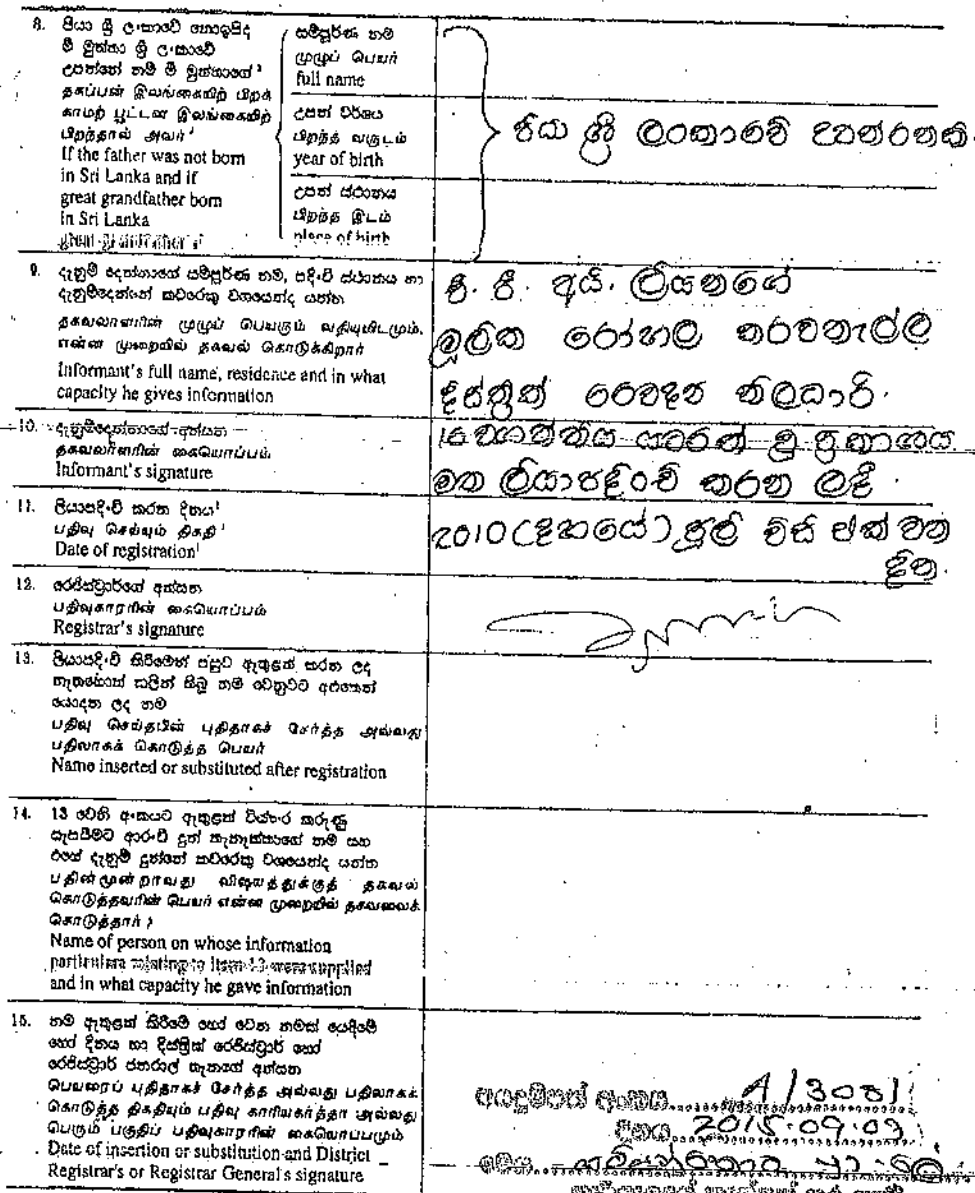 8. පියා ශ්‍රී ලංකාවේ නොඉපිද
මී මුත්තා ශ්‍රී ලංකාවේ
උපන්නේ නම් මී මුත්තාගේ
தகப்பன் இலங்கையிற் பிறக்
காமற் பூட்டன் இலங்கையிற்
பிறந்தால் அவர்
If the father was not born
in Sri Lanka and if
great grandfather born
in Sri Lanka
සම්පූර්ණ නම
முழுப் பெயர்
full name
උපන් වර්ෂය
பிறந்த வருடம்
year of birth
උපන් ස්ථානය
பிறந்த இடம்
place of birth
පියා ශ්‍රී ලංකාවේ උපන්
9. දැනුම් දෙන්නාගේ සම්පූර්ණ නම, පදිංචි ස්ථානය හා
දැනුම්දෙන්නේ කවරෙකු වශයෙන්ද යන්න
தகவலாளரின் முழுப் பெயரும் வதியுமிடமும்,
என்ன முறையில் தகவல் கொடுக்கிறார்
Informant's full name, residence and in what
capacity he gives information
අයි. ලියනගේ
මූලික රෝහල කරවනැල්ල
දිස්ත්‍රික් වෛද්‍ය නිලධාරි.
10. දැනුම්දෙන්නාගේ අත්සන
தகவலாளரின் கையொப்பம்
Informant's signature
16 වගන්තිය යටතේ වූ ප්‍රකාශය
මත ලියාපදිංචි කරන ලදී
11. ලියාපදිංචි කරන දිනය
பதிவு செய்யும் திகதி
Date of registration
2010 (දහයේ) ජූලි විසි එක් වන
දින.
12. රෙජිස්ට්‍රාර්ගේ අත්සන
பதிவுகாரரின் கையொப்பம்
Registrar's signature
13. ලියාපදිංචි කිරීමෙන් පසුව ඇතුළත් කරන ලද
නැතහොත් කලින් තිබූ නම වෙනුවට අළුතෙන්
යොදන ලද නම
பதிவு செய்தபின் புதிதாகச் சேர்த்த அல்லது
பதிலாகக் கொடுத்த பெயர்
Name inserted or substituted after registration
14. 13 වෙනි අංකයට ඇතුළත් විස්තර කරුණු
සැපයීමට ආරංචි දුන් තැනැත්තාගේ නම සහ
එසේ දැනුම් දුන්නේ කවරෙකු වශයෙන්ද යන්න
பதின்மூன்றாவது விஷயத்துக்குத் தகவல்
கொடுத்தவரின் பெயர் என்ன முறையில் தகவலைக்
கொடுத்தார்
Name of person on whose information
particulars relating to item 13 were supplied
and in what capacity he gave information
15. නම ඇතුළත් කිරීමේ හෝ වෙන නමක් යෙදීමේ
හෝ දිනය හා දිස්ත්‍රික් රෙජිස්ට්‍රාර් හෝ
රෙජිස්ට්‍රාර් ජනරාල් තැනගේ අත්සන
பெயரைப் புதிதாகச் சேர்த்த அல்லது பதிலாகக்
கொடுத்த திகதியும் பதிவு காரியகர்த்தா அல்லது
பெரும் பகுதிப் பதிவுகாரரின் கையொப்பமும்
Date of insertion or substitution and District
Registrar's or Registrar General's signature
අයදුම්පත් අංකය A/3081
දිනය 2015.09.09